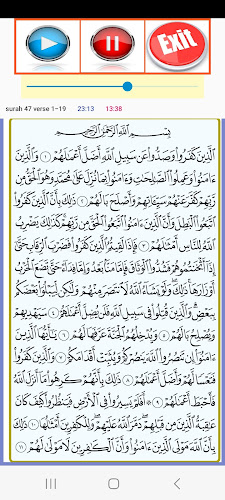 Exit
surah 47 verse 1-19 23:13 13:38
بِسْمِ ٱللَّهِ ٱلرَّحْمَٰنِ ٱلرَّحِيمِ
ٱلَّذِينَ كَفَرُوا۟ وَصَدُّوا۟ عَن سَبِيلِ ٱللَّهِ أَضَلَّ أَعْمَٰلَهُمْ ١ وَٱلَّذِينَ
ءَامَنُوا۟ وَعَمِلُوا۟ ٱلصَّٰلِحَٰتِ وَءَامَنُوا۟ بِمَا نُزِّلَ عَلَىٰ مُحَمَّدٍ وَهُوَ ٱلْحَقُّ مِن
رَّبِّهِمْ كَفَّرَ عَنْهُمْ سَيِّـَٔاتِهِمْ وَأَصْلَحَ بَالَهُمْ ٢ ذَٰلِكَ بِأَنَّ ٱلَّذِينَ كَفَرُوا۟
ٱتَّبَعُوا۟ ٱلْبَٰطِلَ وَأَنَّ ٱلَّذِينَ ءَامَنُوا۟ ٱتَّبَعُوا۟ ٱلْحَقَّ مِن رَّبِّهِمْ كَذَٰلِكَ يَضْرِبُ
ٱللَّهُ لِلنَّاسِ أَمْثَٰلَهُمْ ٣ فَإِذَا لَقِيتُمُ ٱلَّذِينَ كَفَرُوا۟ فَضَرْبَ ٱلرِّقَابِ حَتَّىٰٓ
إِذَآ أَثْخَنتُمُوهُمْ فَشُدُّوا۟ ٱلْوَثَاقَ فَإِمَّا مَنًّۢا بَعْدُ وَإِمَّا فِدَآءً حَتَّىٰ تَضَعَ ٱلْحَرْبُ
أَوْزَارَهَا ذَٰلِكَ وَلَوْ يَشَآءُ ٱللَّهُ لَٱنتَصَرَ مِنْهُمْ وَلَٰكِن لِّيَبْلُوَا۟ بَعْضَكُم
بِبَعْضٍ وَٱلَّذِينَ قُتِلُوا۟ فِى سَبِيلِ ٱللَّهِ فَلَن يُضِلَّ أَعْمَٰلَهُمْ ٤ سَيَهْدِيهِمْ
وَيُصْلِحُ بَالَهُمْ ٥ وَيُدْخِلُهُمُ ٱلْجَنَّةَ عَرَّفَهَا لَهُمْ ٦ يَٰٓأَيُّهَا ٱلَّذِينَ
ءَامَنُوٓا۟ إِن تَنصُرُوا۟ ٱللَّهَ يَنصُرْكُمْ وَيُثَبِّتْ أَقْدَامَكُمْ ٧ وَٱلَّذِينَ كَفَرُوا۟
فَتَعْسًا لَّهُمْ وَأَضَلَّ أَعْمَٰلَهُمْ ٨ ذَٰلِكَ بِأَنَّهُمْ كَرِهُوا۟ مَآ أَنزَلَ ٱللَّهُ
فَأَحْبَطَ أَعْمَٰلَهُمْ ٩ ۞ أَفَلَمْ يَسِيرُوا۟ فِى ٱلْأَرْضِ فَيَنظُرُوا۟ كَيْفَ كَانَ
عَٰقِبَةُ ٱلَّذِينَ مِن قَبْلِهِمْ دَمَّرَ ٱللَّهُ عَلَيْهِمْ وَلِلْكَٰفِرِينَ أَمْثَٰلُهَا ١٠ ذَٰلِكَ
بِأَنَّ ٱللَّهَ مَوْلَى ٱلَّذِينَ ءَامَنُوا۟ وَأَنَّ ٱلْكَٰفِرِينَ لَا مَوْلَىٰ لَهُمْ ١١